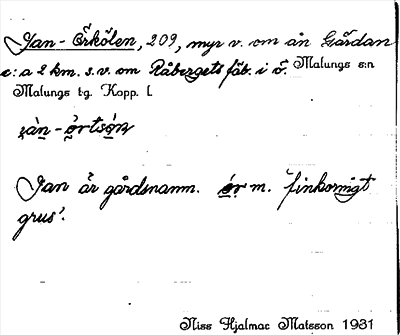 Jan-Örkölen, 209, myr v. om ån Gärdan
c:a 2 km. s.v. om Råbergets fäb. i ö. Malungs s:n
Malungs tg. Kopp. l.
Jan är gårdsnamn. ör m. 'finkornigt
grus'.
Niss Hjalmar Matsson 1931